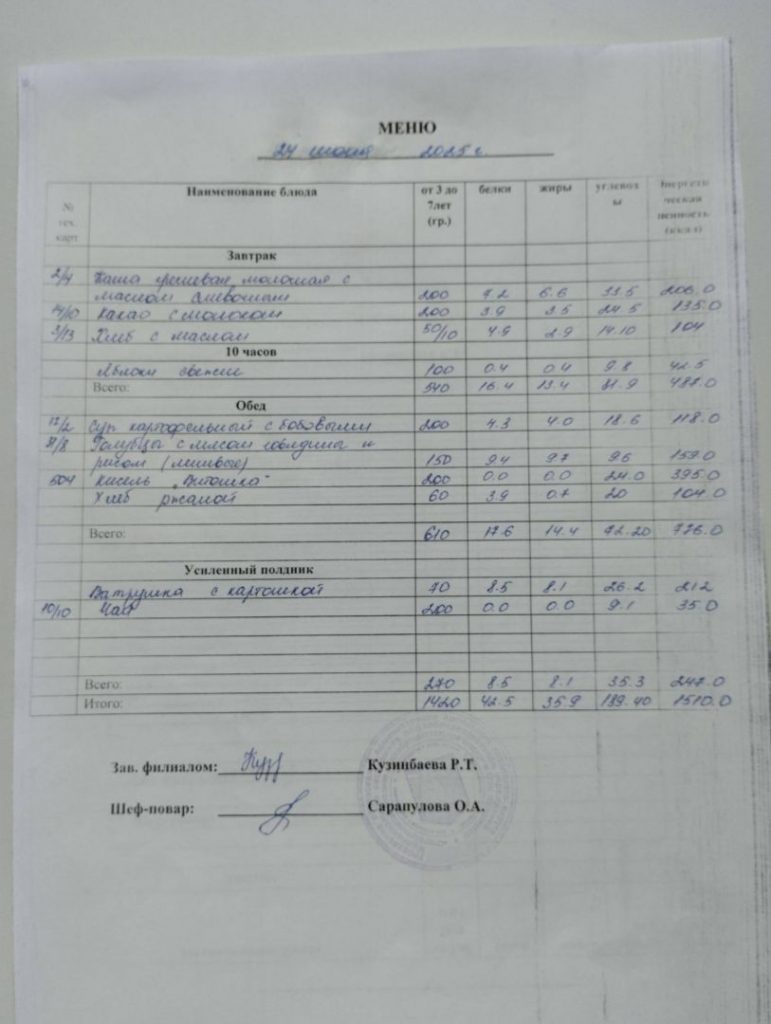 МЕНЮ
24 июня 2025 г.
№ тех. карт
Наименование блюда
от 3 до 7лет (гр.)
белки
жиры
углевод ы
Энергети ческая ценность (ккал)
Завтрак
2/4 Каша гречневая молочная с
маслом сливочным 200 7.2 6.6 33.5 206.0
14/10 Какао с молоком 200 3.9 3.5 24.5 135.0
3/13 Хлеб с маслом 50/10 4.9 2.9 14.10 104
10 часов
Яблоки свежие 100 0.4 0.4 9.8 42.5
Всего: 540 16.4 13.4 81.9 487.0
Обед
12/2 Суп картофельный с бобовыми 200 4.3 4.0 18.6 118.0
8/8 Голубцы с мясом говядины и
рисом (ленивые) 150 9.4 9.7 9.6 159.0
504 Кисель „Витошка“ 200 0.0 0.0 24.0 395.0
Хлеб ржаной 60 3.9 0.7 20 104.0
Всего: 610 17.6 14.4 72.20 776.0
Усиленный полдник
Ватрушка с картошкой 70 8.5 8.1 26.2 212
10/10 Чай 200 0.0 0.0 9.1 35.0
Всего: 270 8.5 8.1 35.3 247.0
Итого: 1420 42.5 35.9 189.40 1510.0
Зав. филиалом: Кузинбаева Р.Т.
Шеф-повар: Сарапулова О.А.